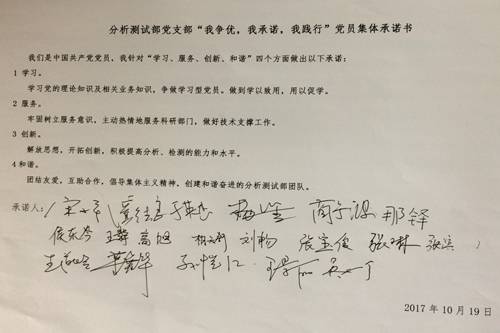 分析测试部党支部“我争优，我承诺，我践行”党员集体承诺书
我们是中国共产党党员，我针对“学习、服务、创新、和谐”四个方面做出以下承诺：
1 学习。
学习党的理论知识及相关业务知识，争做学习型党员。做到学以致用，用以促学。
2 服务。
牢固树立服务意识，主动热情地服务科研部门，做好技术支撑工作。
3 创新。
解放思想，开拓创新，积极提高分析、检测的能力和水平。
4 和谐。
团结友爱，互助合作，倡导集体主义精神，创建和谐奋进的分析测试部团队。
承诺人：那铎
高旭 刘杨 张宝俊 张琳 张滨
2017 年 10 月 19 日